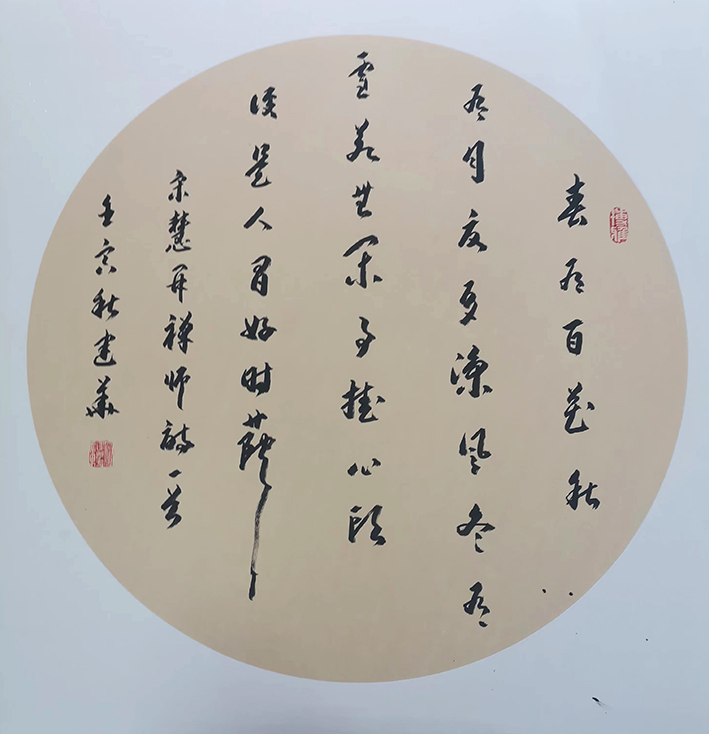 春有百花秋
有月夏有涼風冬有
雪若無閑事挂心頭
便是人間好時節
宋慧開禪師詩一首
壬寅秋建華